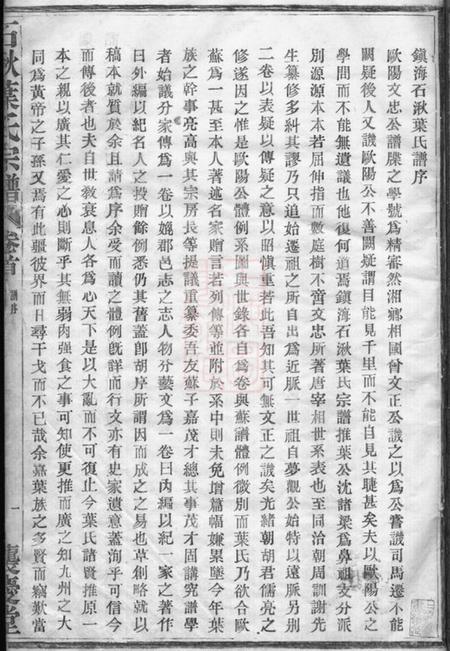 鎮海石湫葉氏譜序
歐陽文忠公譜牒之學號爲精審然湘鄉相國曾文正公譏之以爲公嘗譏司馬遷不能
闕疑後人又譏歐陽公不善闕疑謂目能見千里而不能自見其睫甚矣夫以歐陽公之
學問而不能無遺議也他復何道焉鎮海石湫葉氏宗譜推葉公沈諸梁爲鼻祖支分派
別源源本本若屈伸指而數庭樹不啻文忠所著唐宰相世系表也至同治朝周訓謝先
生纂修多糾其謬乃只追始遷祖之所自出爲近脈一世祖自夢觀公始特以遠脈另別
二卷以表疑以傳疑之意以昭愼重若此吾知其可無文正之譏矣光緒朝胡君儒亮之
修遂因之惟是歐陽公體例系圖與世錄各自爲卷與蘇譜體例微別而葉氏乃欲合歐
蘇爲一甚至本人著述名家贈言若列傳等並附於系中則未免增篇幅嫌累墜今年葉
族之幹事亮高與其宗房長等提議重纂委吾友蘇子嘉茂才總其事茂才固講究譜學
者始議分家傳爲一卷以媲郡邑志之志人物分藝文爲一卷曰內編以紀一家之著作
曰外編以紀名人之投贈餘例悉仍其舊蓋卽胡序所謂因而成之之易也草創略就以
稿本就質於余且請爲序余受而讀之體例旣詳而行文亦有史家遺意蓋洵乎可信今
而傳後者也夫自世教衰息人各爲心天下是以大亂而不可復止今葉氏諸賢推原一
本之親以廣其仁愛之心則斷乎其無弱肉強食之事可知使更推而廣之知九州之大
同爲黃帝之子孫又焉有此疆彼界而日尋干戈而不已哉余嘉葉族之多賢而竊歎當
石湫葉氏宗譜
卷首
譜序
一